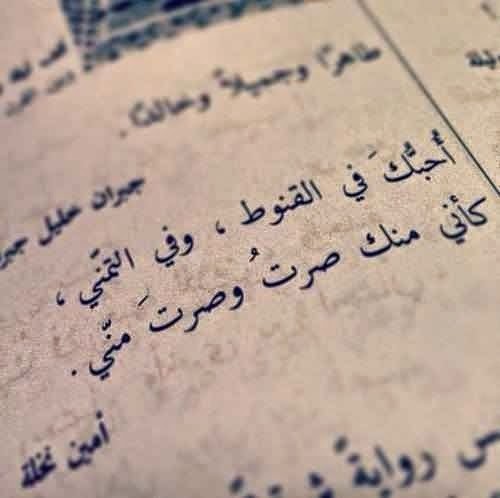 طاهرًا وجميلاً وخالدًا.
جبران خليل
أُحبُّكَ في القنوط ، وفي التمنّي ،
كأني منك صرتُ وصرتَ منّي .
أمين نخلة
رواية